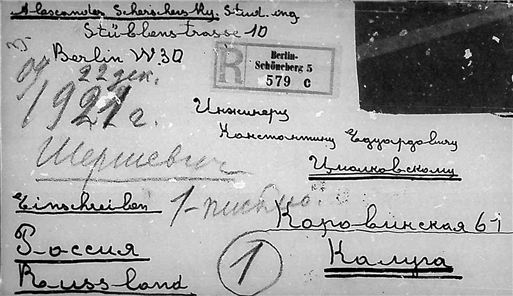 Alexander Scherschersky. Stud. ing
Stübbenstrasse 10
Berlin W30
R
Berlin-
Schöneberg 5
579 c
от
22 дек.
1921 г.
Инженеру
Константину Эдуардовичу
Циолковскому
Шершевич
Einschreiben
1-
Коровинская 61
Россия
Калуга
1
Russland